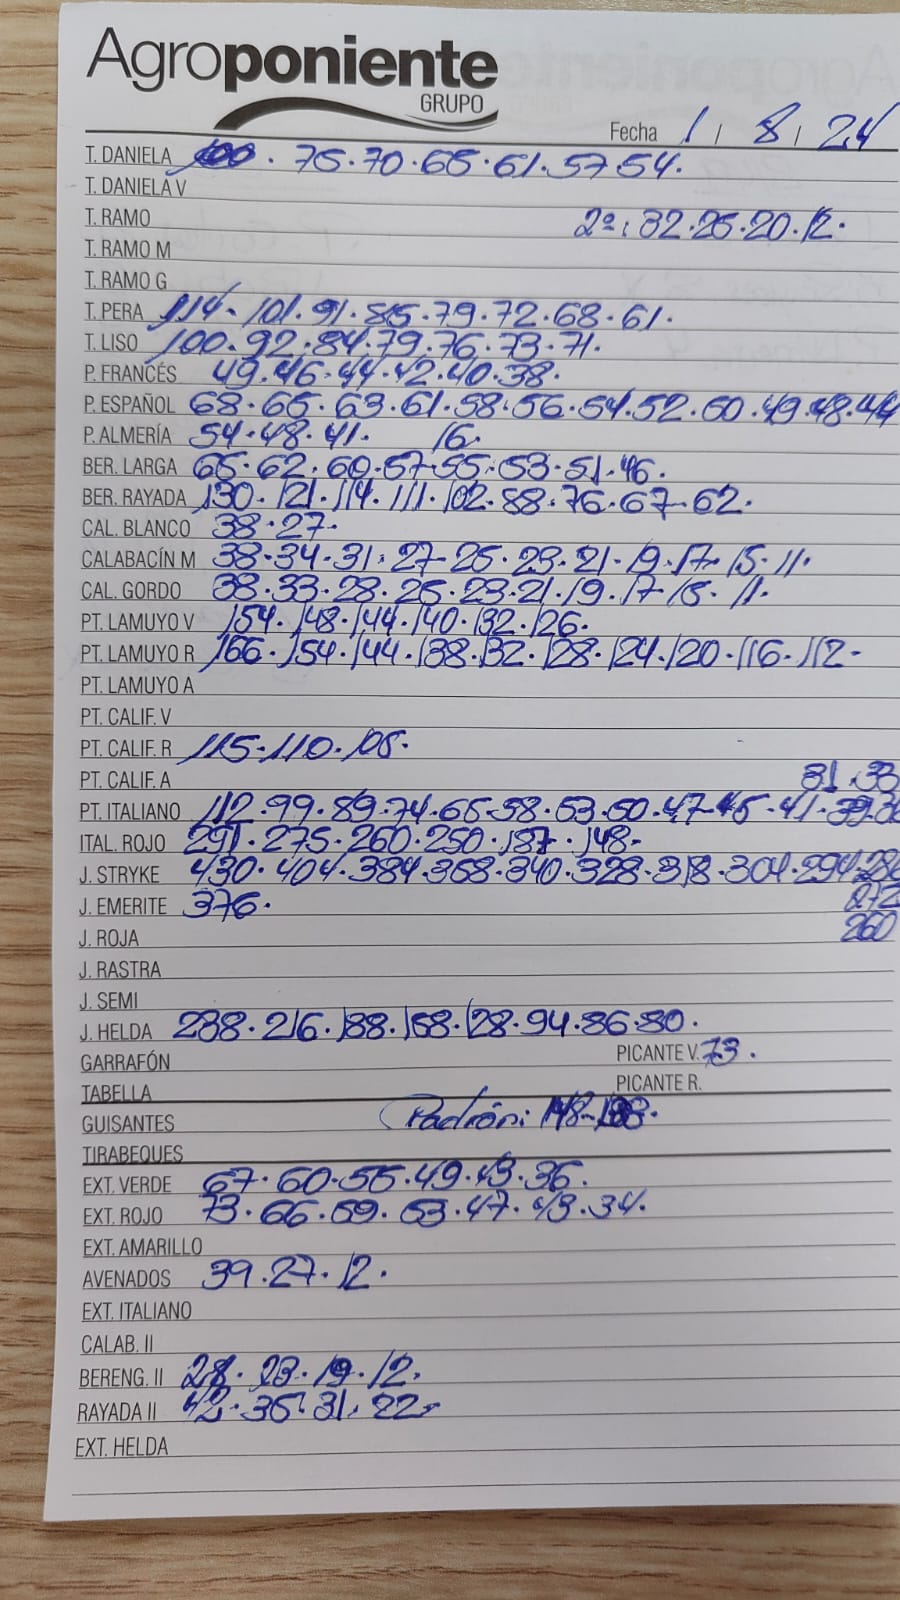 Agroponiente
GRUPO
Fecha 1 / 8 / 24
T. DANIELA 75.70.65.61.57 54.
T. DANIELA V
T. RAMO 2ª: 32.25.20.12.
T. RAMO M
T. RAMO G
T. PERA 114.101.91.85.79.72.68.61.
T. LISO 100.92.84.79.76.73.71.
P. FRANCÉS 49.46.44.42.40.38.
P. ESPAÑOL 68.65.63.61.58.56.54.52.50.49.48.44
P. ALMERÍA 54.48.41. 16.
BER. LARGA 65.62.60.57.55.53.51.46.
BER. RAYADA 130.121.114.111.102.88.76.67.62.
CAL. BLANCO 38.27.
CALABACÍN M 38.34.31.27.25.23.21.19.17.15.11.
CAL. GORDO 38.33.28.25.23.21.19.17.15.11.
PT. LAMUYO V 154.148.144.140.132.126.
PT. LAMUYO R 166.154.144.138.132.128.124.120.116.112.
PT. LAMUYO A
PT. CALIF. V
PT. CALIF. R 115.110.105.
PT. CALIF. A 31.33
PT. ITALIANO 112.99.89.74.65.58.53.50.47.45.41.39
ITAL. ROJO 291.275.260.250.187.148.
J. STRYKE 430.404.384.368.340.328.318.304.294
J. EMERITE 376. 272
J. ROJA 260
J. RASTRA
J. SEMI
J. HELDA 288.216.188.158.128.94.86.80.
GARRAFÓN PICANTE V. 73.
TABELLA PICANTE R.
GUISANTES Padrón: 148-
TIRABEQUES
EXT. VERDE 67.60.55.49.43.36.
EXT. ROJO 73.66.59.53.47.43.34.
EXT. AMARILLO
AVENADOS 39.27.12.
EXT. ITALIANO
CALAB. II
BERENG. II 28.23.19.12.
RAYADA II 42.35.31.22.
EXT. HELDA